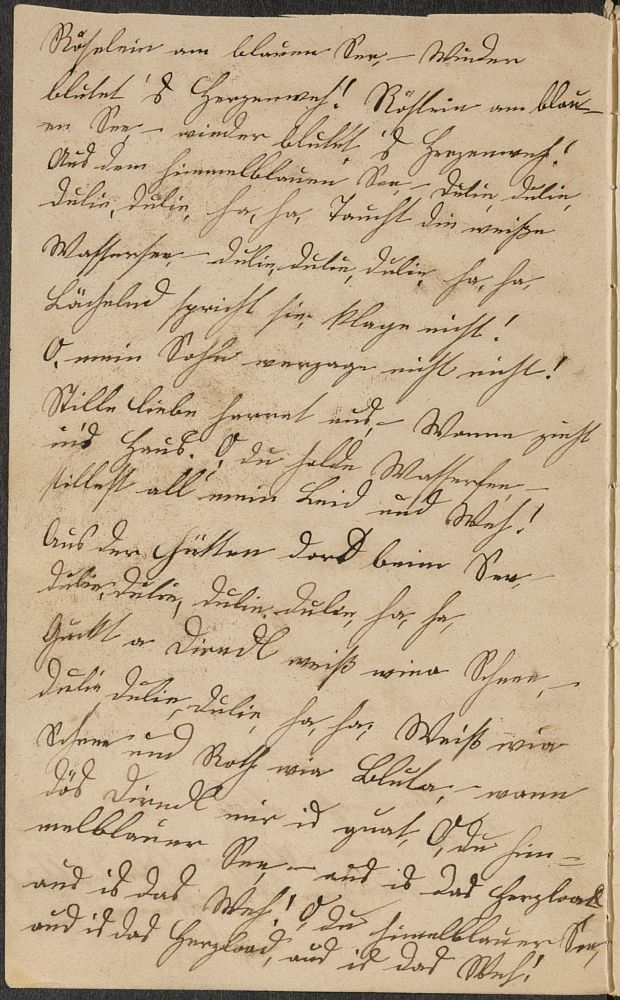 Röselein am blauen See, – Wieder
blutet 's Herzenweh! Röslein am blau-
en See – wieder blutet 's Herzenweh!
Aus dem himmelblauen See – Dulie, dulie,
dulie, dulie, ha, ha, Taucht die weiße
Wasserfee, – dulie, dulie, dulie, ha, ha,
Lächelnd spricht sie, klage nicht!
O, mein Sohn verzage nicht nicht!
Stille Liebe harret aus, – Wonne zieht
in's Haus. O, du holde Wasserfee, –
stillest all' mein Leid und Weh!
Aus der Hütten dort beim See, –
dulie, dulie, dulie, dulie, ha, ha,
Guckt a Dirndl weiß wia Schnee, –
dulie dulie, dulie, ha, ha; Weiß wia
Schnee und Roth wia Bluta, – wann
dös Dirndl mir is guat, O, du him=
melblauer See, – aus is das Herzload
aus is das Weh! O, du himelblauer See,
aus is das Herzload, aus is das Weh!